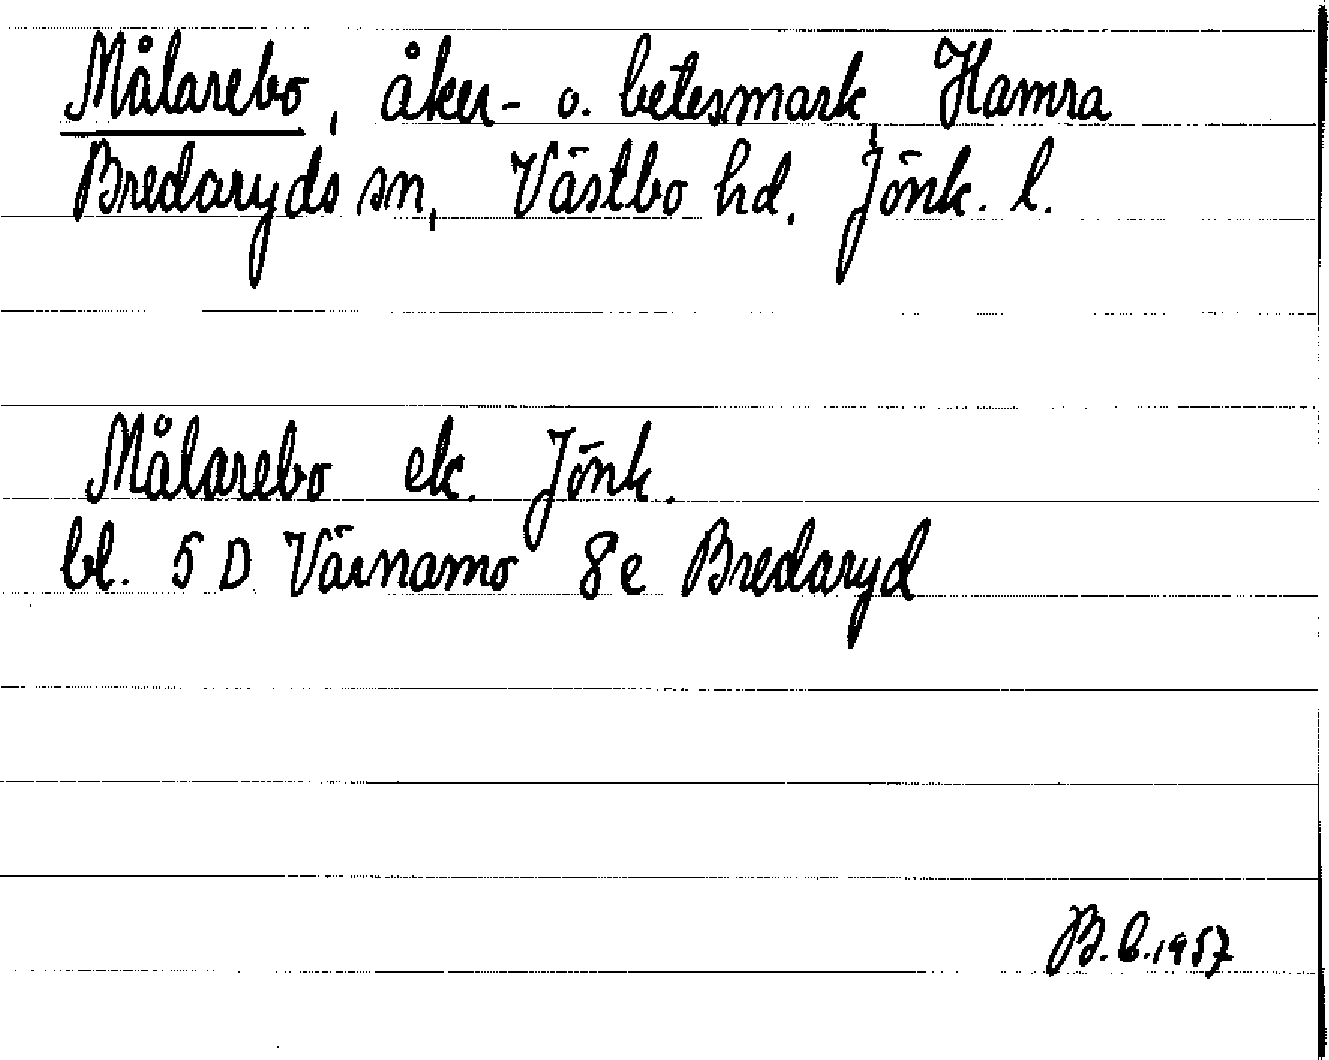 Målarebo, åker- o. betesmark, Hamra
Bredaryds sn, Västbo hd, Jönk. l.
Målarebo ek. Jönk.
bl. 5 D Värnamo 8e Bredaryd
B.b.1957